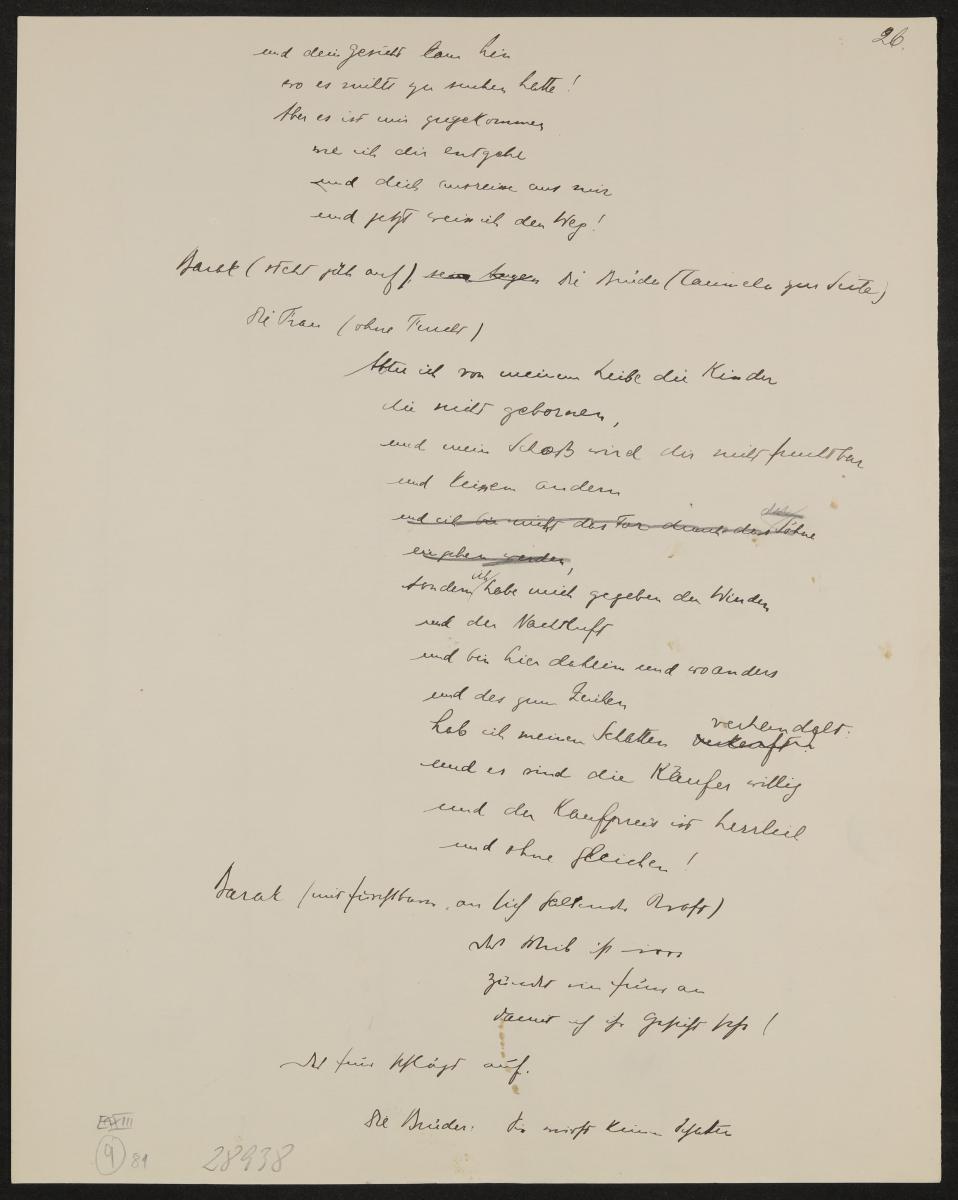 26.
und dein Gesicht kam hin
wo es nichts zu suchen hatte!
Aber es ist mir zugekommen
wie ich dir entgehe
und dich ausreisse aus mir
und jetzt weiss ich den Weg!
Barak (steht jäh auf), sein Augen die Brüder (taumeln zur Seite)
Die Frau (ohne Furcht)
Abtu ich von meinem Leibe die Kinder
die nicht gebornen,
und mein Schoß wird dir nicht fruchtbar
und keinem andern
und ich bin nicht das Tor durch das Söhne
eingehen werden,
sondern ich habe mich gegeben den Winden
und der Nachtluft
und bin hier daheim und woanders
und des zum Zeichen
hab ich meinen Schatten verkauft verhandelt:
und es sind die Käufer willig
und der Kaufpreis ist herrlich
und ohne gleichen!
Barak (mit furchtbarer, an sich haltender Kraft)
Das Weib ist irre
zündet ein Feuer an
damit ich ihr Gesicht seh!
Das Feuer schlägt auf.
Die Brüder: Sie wirft keinen Schatten
9 89 28938